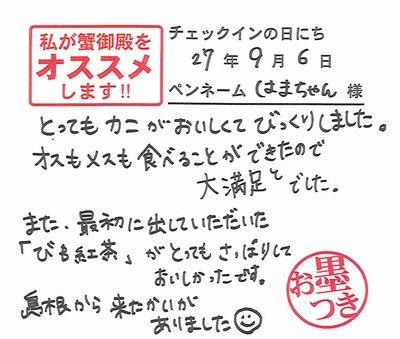 私が蟹御殿を
オススメ
します!!
チェックインの日にち
27年9月6日
ペンネーム はまちゃん 様
とってもカニがおいしくてびっくりしました。
オスもメスも食べることができたので
大満足とでした。
また、最初に出していただいた
「びわ紅茶」がとてもさっぱりして
おいしかったです。
島根から来たかいが
ありました
お墨つき